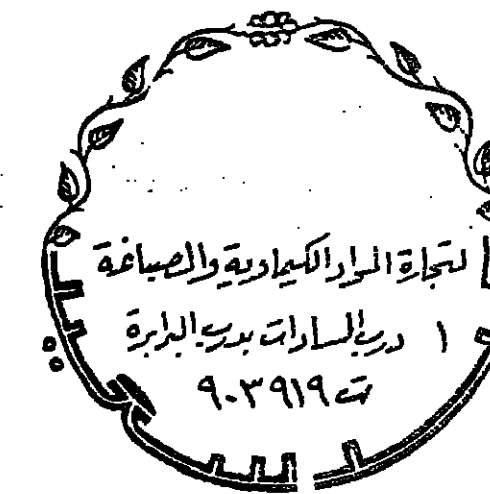 لتجارة المواد الكيماوية والصباغة
١ درب السادات بدرب البرابرة
ت ٩٠٣٩١٩